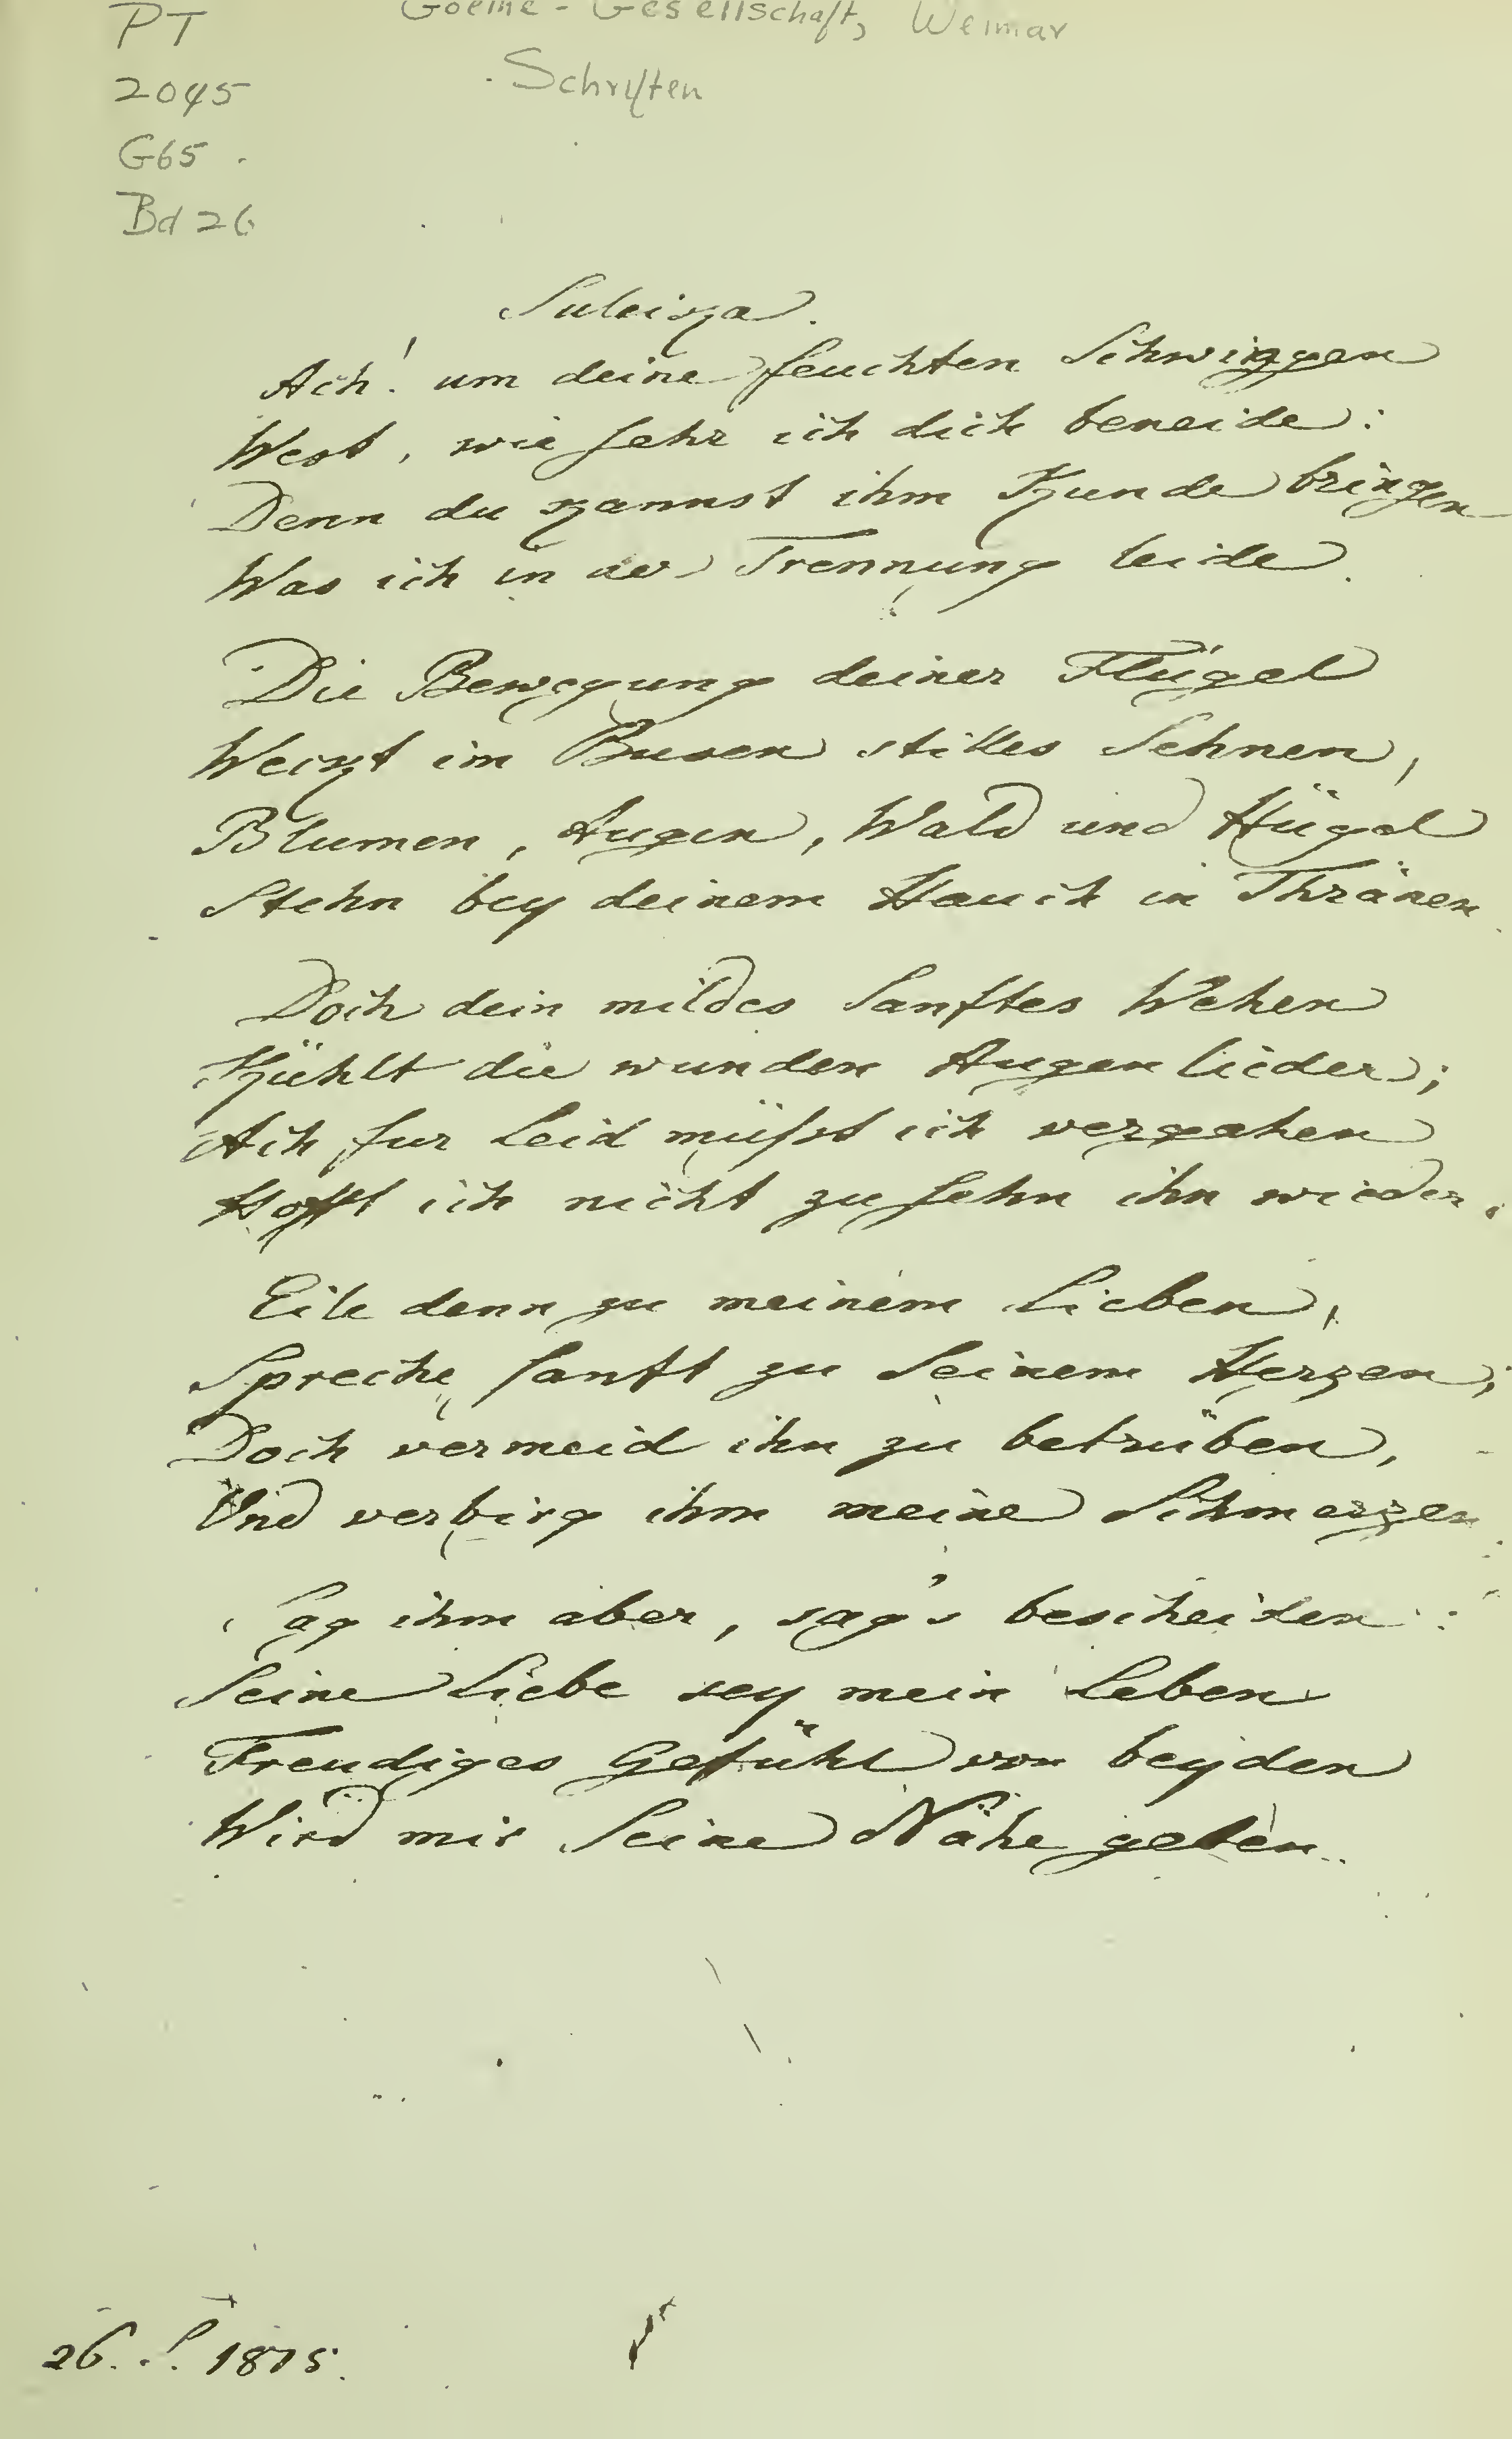 PT
2045
G65.
Bd 26
Goethe-Gesellschaft, Weimar
Schriften
Suleika.
Ach! um deine feuchten Schwingen
West, wie sehr ich dich beneide:
Denn du kannst ihm Kunde bringen
Was ich in der Trennung leide.
Die Bewegung deiner Flügel
Weckt im Busen stilles Sehnen,
Blumen, Augen, Wald und Hügel
Stehn bey deinem Hauch in Thränen
Doch dein mildes sanftes Wehen
Kühlt die wunden Augenlieder;
Ach fur Leid müsst ich vergehen
Hofft ich nicht zu sehn ihn wieder.
Eile denn zu meinem Lieben,
Spreche sanft zu seinem Herzen;
Doch vermeid ihn zu betrüben,
Und verbirg ihm meine Schmerzen
Sag ihm aber, sag's bescheiden:
Seine Liebe sey mein Leben
Freudiges Gefühl von beyden
Wird mir Seine Nähe geben.
26. S. 1815.